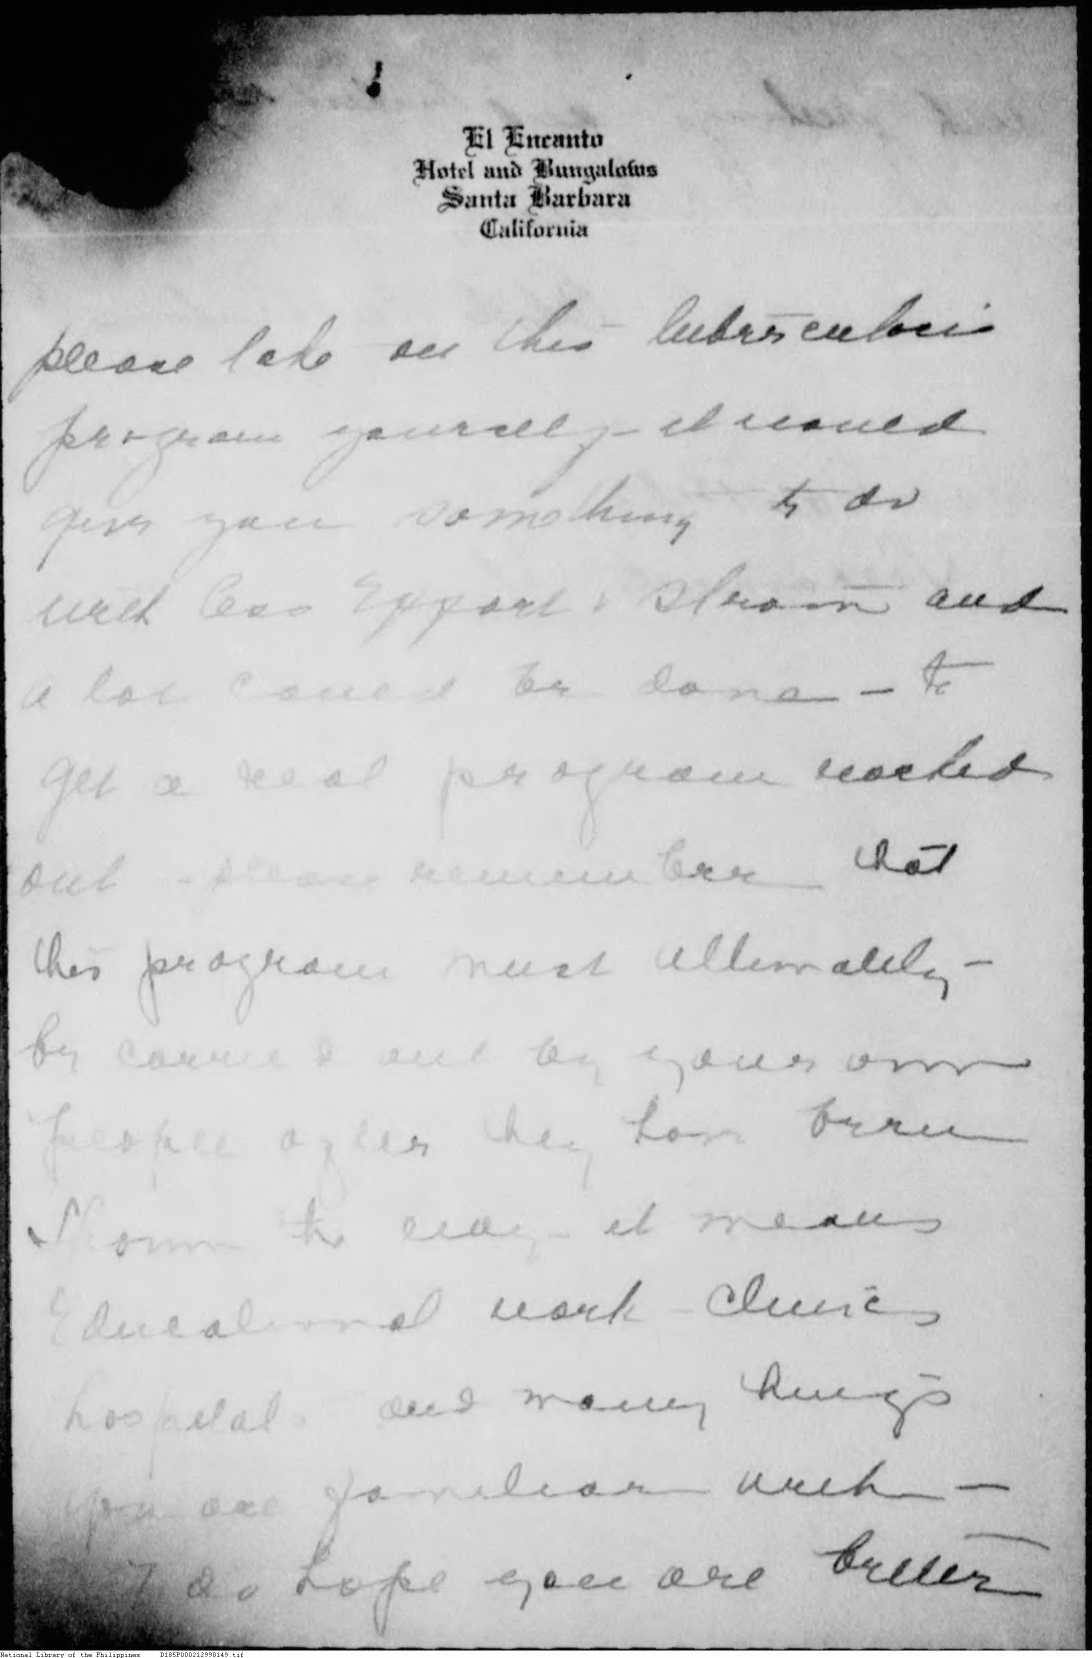 El Encanto
Hotel and Bungalows
Santa Barbara
California
please take on this tuberculosis
program yourself - it would
give you something to do
with less effort & strain and
a lot could be done - to
get a real program worked
out - please remember that
this program must ultimately -
be carried out by your own
people after they have been
shown the way - it means
Educational work - Clinics
hospitals and many things
you are familiar with -
I do hope you are better
National Library of the Philippines D185P000212990149.tif